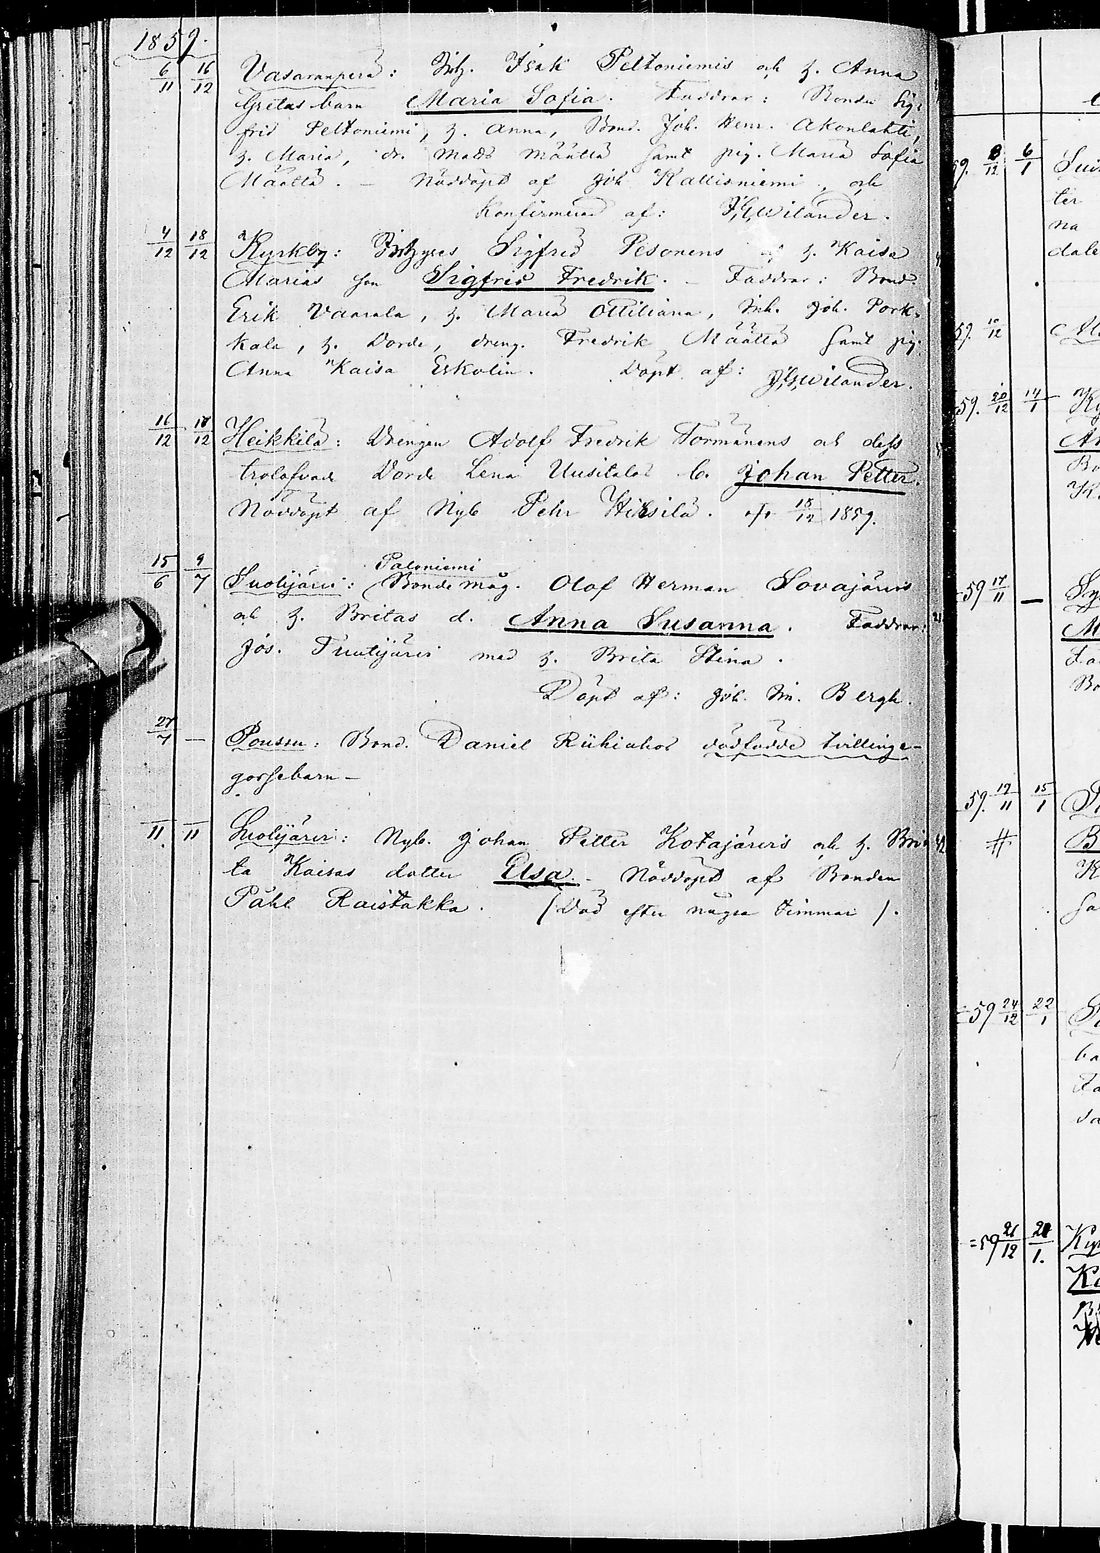 1859.
6/11 16/12 Vasaranperä: Inh. Isak Peltoniemis och h. Anna
Gretas barn Maria Sofia. Faddrar: Bonden Sig-
frid Peltoniemi, h. Anna, Bond. Joh. Henr. Akonlahti,
h. Maria, dr. Mads Määttä samt pig. Maria Sofia
Määttä. – Nöddöpt af Joh. Kallisniemi, och
Konfirmerad af: J.G. Wilander.
4/12 18/12 Kyrkby: Inhyses Sigfrid Pesonens och h. Kaisa
Marias son Sigfrid Fredrik. – Faddrar: Bond.
Erik Vaarala, h. Maria Ottiliana, Inh. Joh. Pork-
kala, h. Dorde, dreng. Fredrik Määttä samt pig.
Anna Kaisa Eskolin. Döpt af: J.G. Wilander.
16/12 18/12 Heikkilä: Drengen Adolf Fredrik Törmänens och dess
trolofvade Dorde Lena Uusitalos b. Johan Petter.
Nöddöpt af Nyb. Pehr Hiksilä. 18/12 1859.
15/6 9/7 Suolijärvi: Paloniemi Bondemåg. Olof Herman Sovajärvis
och h. Britas d. Anna Susanna. Faddrar:
Jos. Suolijärvi med h. Brita Stina.
Döpt af: Joh. Im. Bergh.
27/7 – Pousu: Bond. Daniel Riihiahos dödfödde tvillinge-
gossebarn –
11 11 Suolijärvi: Nyb. Johan Petter Kotajärvis och h. Bri-
ta Kaisas dotter Elsa. – Nöddöpt af Bonden
Påhl Raistakka. (Död efter några timmar).
59. 8/12 6/1
ter
na
dale
59. 10/12
59. 20/12 14/1 Ky
59 17/11 –
59. 17/11 15/1
#
59 24/12 22/1
ba
59 26/12 21/1. Kyr